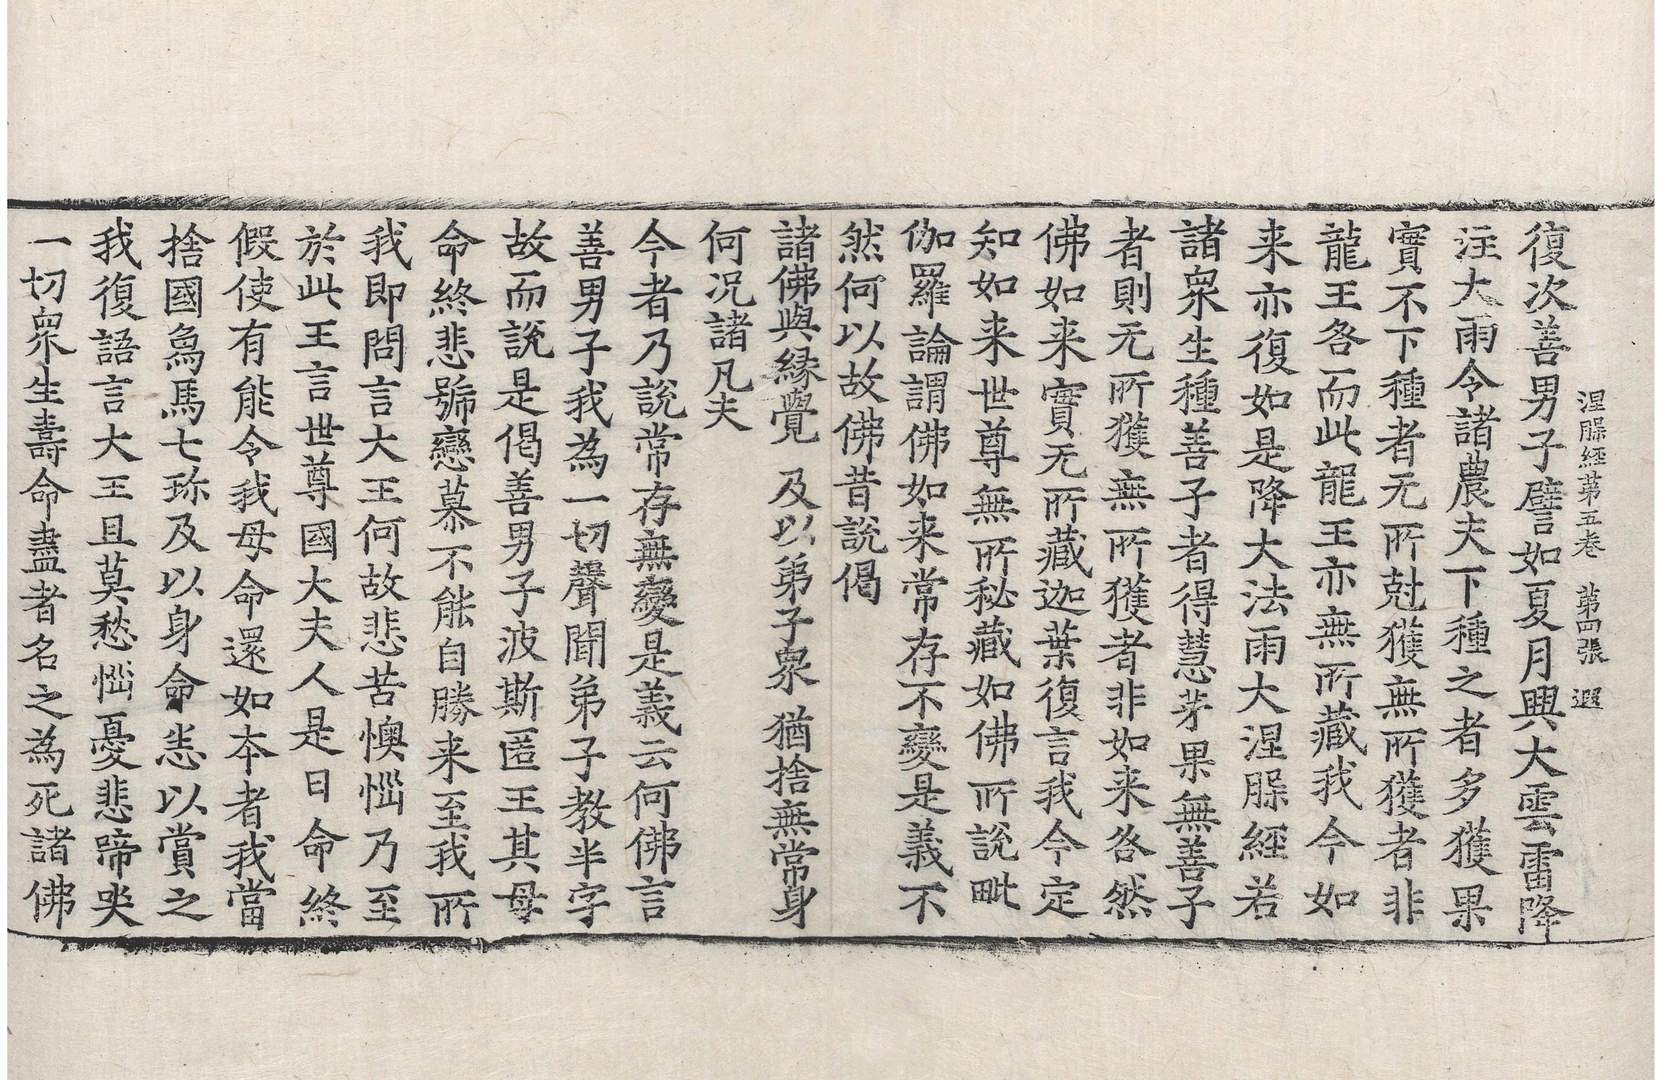 涅槃経第五巻　第四張　遐
復次善男子譬如夏月興大雲雷降
注大雨令諸農夫下種之者多獲果
實不下種者无所尅獲無所獲者非
龍王咎而此龍王亦無所藏我今如
来亦復如是降大法雨大涅槃經若
諸衆生種善子者得慧芽果無善子
者則无所獲無所獲者非如来咎然
佛如来實无所藏迦葉復言我今定
知如来世尊無所秘藏如佛所說毗
伽羅論謂佛如来常存不變是義不
然何以故佛昔說偈
諸佛與緣覺　及以弟子衆　猶捨無常身
何况諸凡夫
今者乃說常存無變是義云何佛言
善男子我為一切聲聞弟子教半字
故而說是偈善男子波斯匿王其母
命終悲號戀慕不能自勝来至我所
我即問言大王何故悲苦懊惱乃至
於此王言世尊國大夫人是日命終
假使有能令我母命還如本者我當
捨國烏馬七珎及以身命悉以賞之
我復語言大王且莫愁惱憂悲啼哭
一切衆生壽命盡者名之為死諸佛